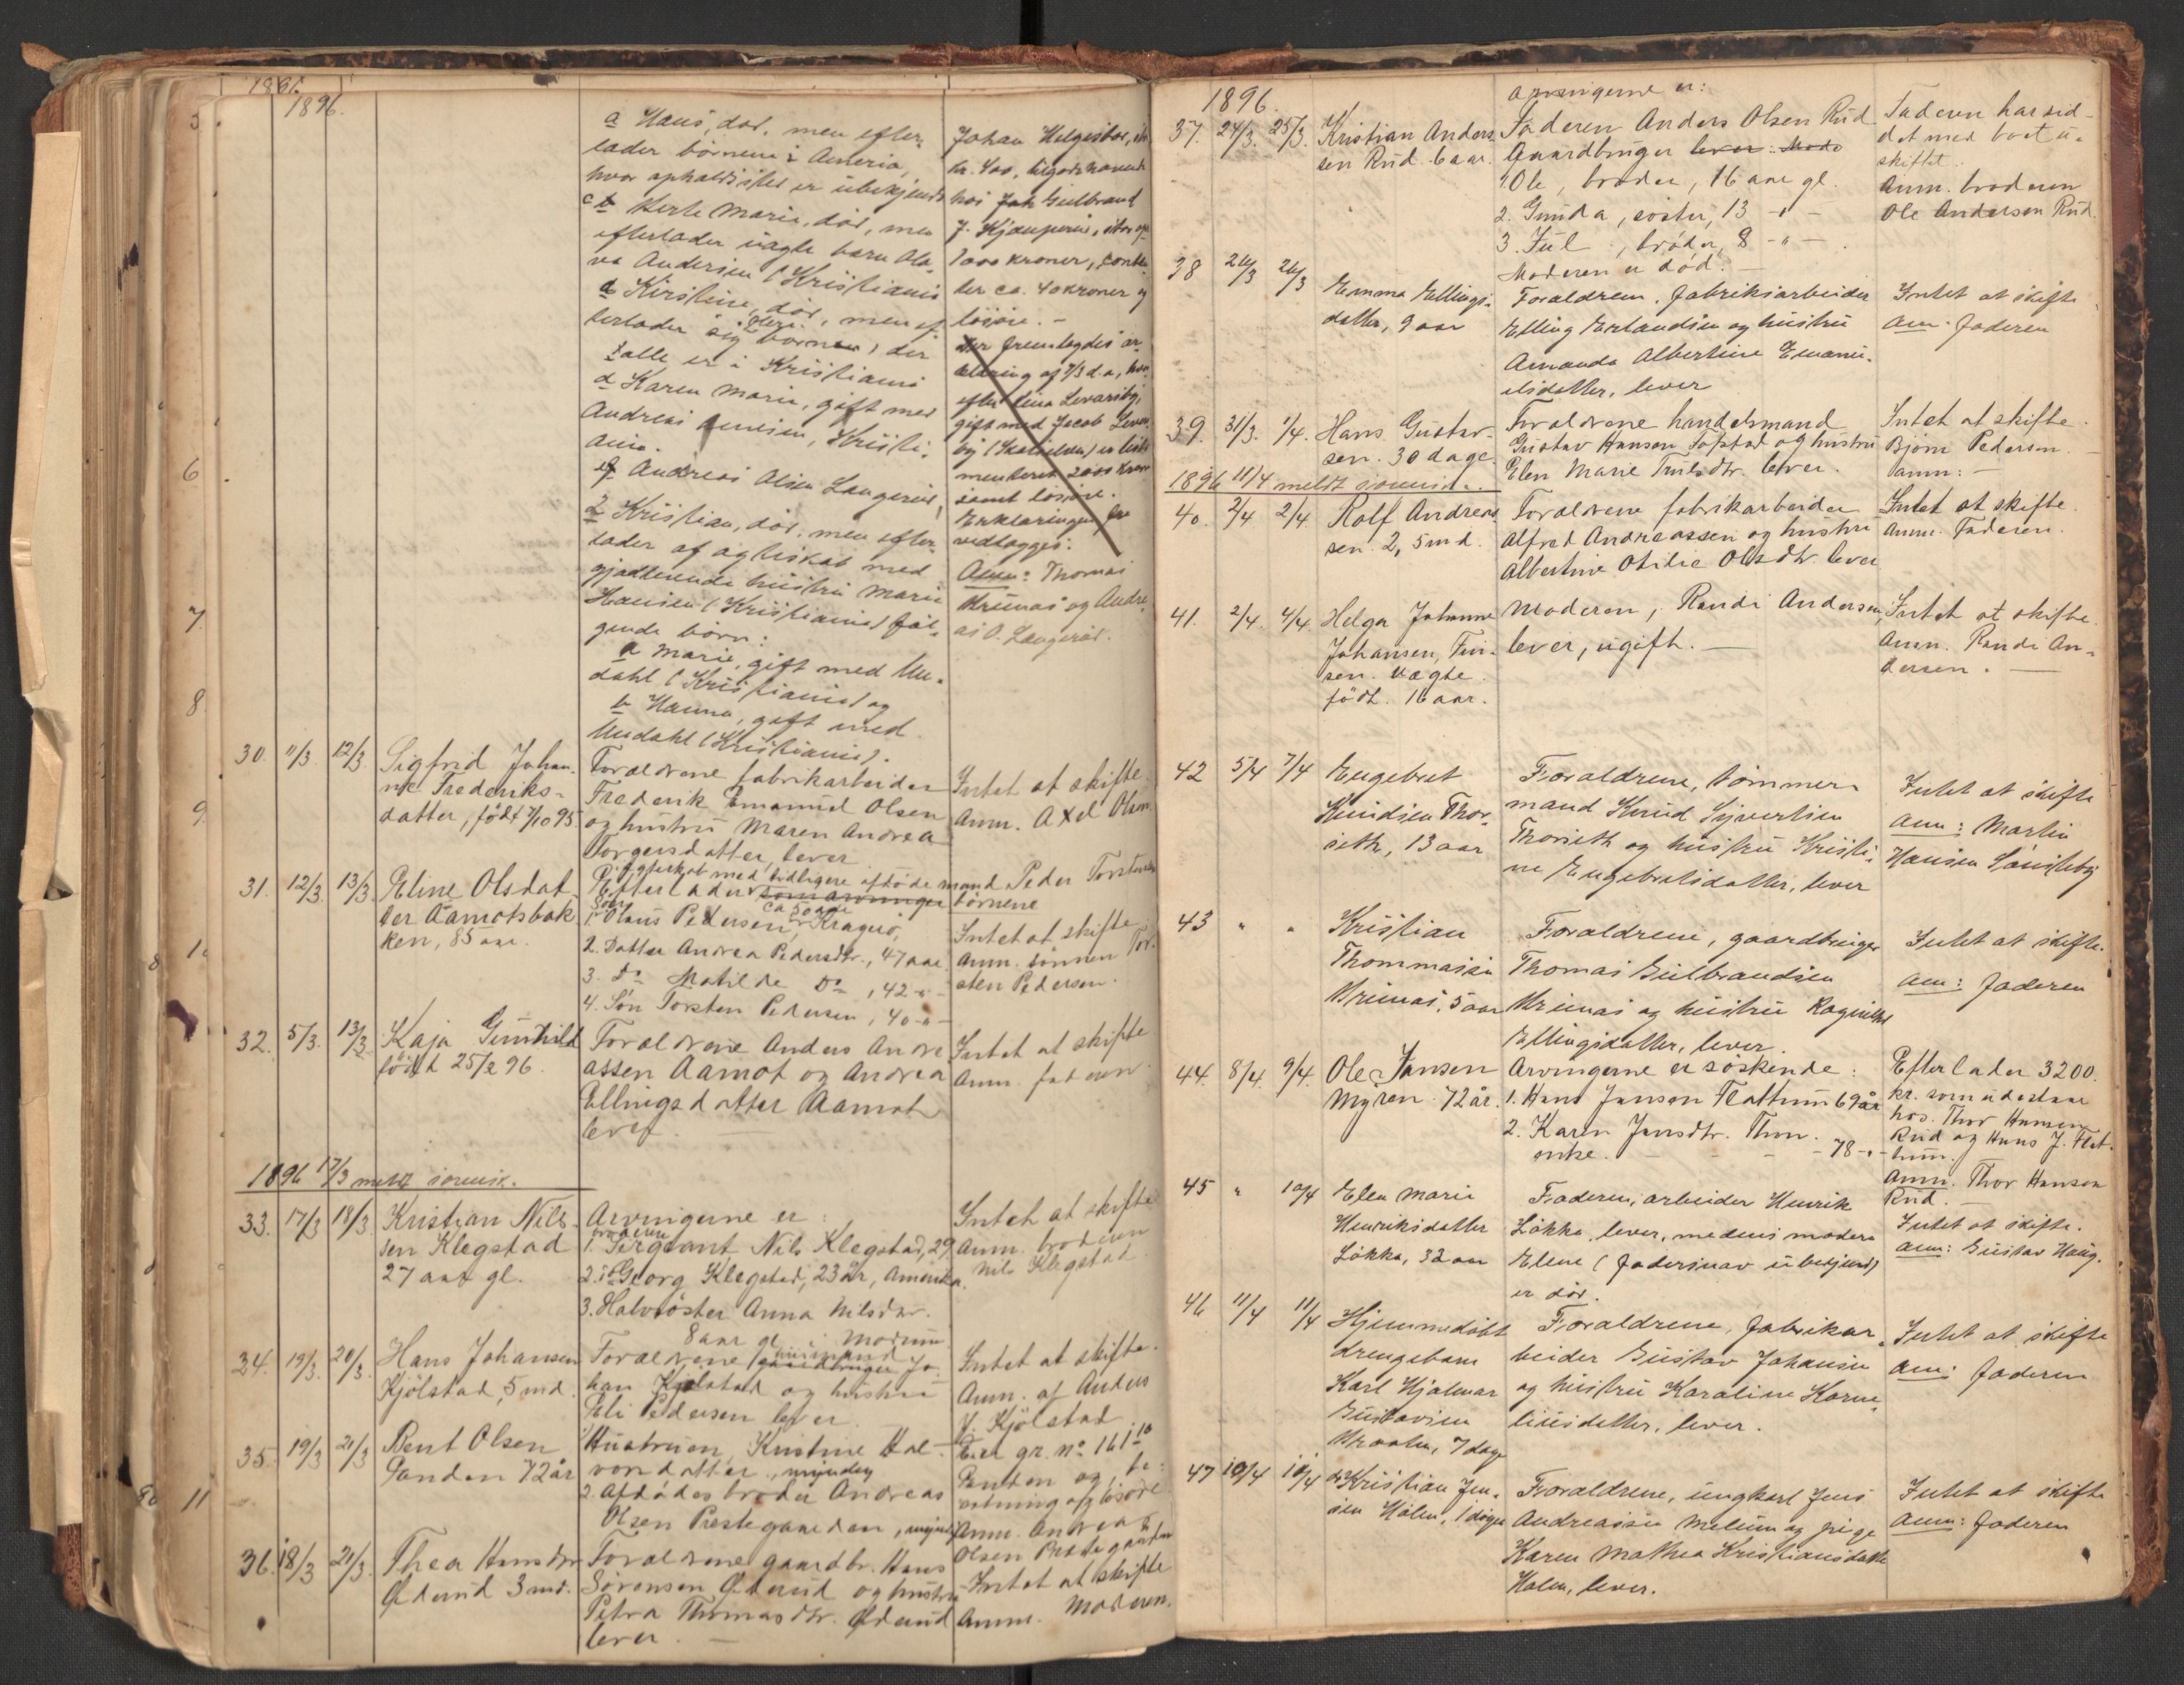 1896.
a Hans, död, men efter-
lader börnene i Ameria,
hvor opholdsstedet er ubekjendt
Marie, död, men
efterlader uægte barn Ola-
va Andersen (Kristiania
d Kirstine, död, men ef
terlader sig flere börn, der
alle er i Kristiania
d Karen Marie, gift med
Andreas Kristi-
ania.
Andreas Olsen Langerud,
2 Kristian, död, men efter-
lader af ægteskab med
gjenlevende hustru Marie
Hansen (Kristiania) föl-
gende börn:
a Marie, gift med Un-
dahl (Kristiania) og
b Hanna, gift med
Undahl (Kristiania).
Johan
kr. 400, tilgodehavende
hos Gulbrand
J.
1000 kroner, conten-
ter ca. 40 kroner og
lösöre. -
der fremlagdes er-
klæring af 7/3 d.a, hvor
efter
gift med Jacob
2000 kroner
samt lösöre.
Erklæringen
vedlægges.
Anm: Thomas
Krunas og Andre
as O. Langerud.
30. 11/3 12/3 Sigfrid Johan-
ne Frederiks-
datter, födt 7/10 95
Foraldrene fabrikarbeider
Frederik Emanuel Olsen
og hustru Maren Andrea
Torgersdatter, lever
Intet at skifte
Anm. Axel Olsen
31. 12/3. 13/3 Eline Olsdat-
ter Aamotsbak
ken, 85 aar.
I ægteskab med tidligere afdöde mand Peder Torstensen
Efterlader som arvinger börnene
1. Sön Olaus Pedersen, ca 50 aar Kragerö,
2. Datter Andrea Pedersdtr., 47 aar
3. Do Matilde Do, 42 -"-
4. Sön Torsten Pedersen, 40 -"-
Intet at skifte
Anm. sönnen Tor-
sten Pedersen.
32. 5/3. 13/3 Kaja Gunhild
födt 25/2 96.
Foraldrene Anders Andre
assen Aamot og Andrea
Ellingsdatter Aamot
lever
Intet at skifte
Anm. faderen
1896 17/3 meldt sorensk.
33. 17/3 18/3 Kristian Nils-
sen Klegstad
27 aar gl.
Arvingerne er:
1. broderen Sergeant Nils Klegstad, 29
2. do Georg Klegstad, 23 år, Amerika
3. Halvsöster Anna Nilsdtr.
8 aar gl. i Modum
Intet at skifte
Anm. broderen
Nils Klegstad
34. 19/3. 20/3. Hans Johansen
Kjölstad, 5 md.
Foraldrene husmand gaardbruger Jo-
han Kjölstad og hustru
Eli Pedersen lever
Intet at skifte.
Anm. af Anders
H. Kjölstad
35. 19/3 21/3 Bent Olsen
Panden 72 år
1. Hustruen, Kristine Hal-
vorsdatter, myndig
2. Afdödes broder Andreas
Olsen Prestegaarden, myndig
Eier gr. no 161
Panden og be-
sætning og lösöre
Anm. Andreas
Olsen Prestegaarden
36. 18/3 21/3. Thea Hansdtr
Öderud 3 md.
Foraldrene gaardbr. Hans
Sörensen Öderud og hustru
Petra Thomasdtr. Öderud
lever
Intet at skifte
Anm. Moderen.
1896.
37. 24/3. 25/3. Kristian Anders
sen Rud. 6 aar.
Arvingerne er:
Faderen Anders Olsen Rud
Gaardbruger lever. Mode
1. Ole, broder, 16 aar gl.
2. Gunda, söster, 13 -"-
3. Jul, bröder, 8 -"-
Moderen er död. -
Faderen har sid-
det med boet u-
skiftet.
Anm. broderen
Ole Andersen Rud.
38 24/3 26/3 Emma Ellings-
datter, 9 aar
Foraldrene, fabriksarbeider
Elling Erlandsen og hustru
Amanda Albertine Emanu-
elsdatter, lever
Intet at skifte
Anm. faderen
39. 31/3. 1/4. Hans Gustav-
sen. 30 dage
Foraldrene handelsmand
Gustav Hansen Fopstad og hustru
Elen Marie Truelsdtr. lever.
Intet at skifte.
Björn Pedersen
anm: -
1896 11/4 meldt sorensk.
40. 2/4 2/4. Rolf Andreas-
sen. 2,5 md.
Foraldrene fabrikarbeider
Alfred Andreassen og hustru
Albertine Otilie Olsdtr. lever
Intet at skifte.
Anm. Faderen.
41. 2/4. 4/4. Helga Johanne
Johansen, Fin-
sen. Uægte
födt. 16 aar.
Moderen, Randi Andersen,
lever, ugift. -
Intet at skifte.
Anm. Randi An-
dersen. -
42 5/4 7/4 Engebret
Knudsen Thor-
seth, 13 aar
Foraldrene, tömmer-
mand Knud Syvertsen
Thorseth og hustru Kristi-
ne Engebretsdatter, lever
Intet at skifte
Anm: Martin
Hansen Sönsteby
43 " " Kristian
Thommassen
Krunas, 5 aar
Foraldrene, gaardbruger
Thomas Gulbrandsen
Krunas og hustru Ragnild
Ellingsdatter, lever.
Intet at skifte.
Anm: faderen
44. 8/4. 9/4. Ole Jansen
Myren. 72 år.
Arvingerne er söskende:
1. Hans Jansen Flattum 69 år
2. Karen Jansdtr. Thon.
enke. - - - 78 -"-
Efterlader 3200.
kr. som udestaar
hos. Thor Hansen
Rud og Hans J. Flat-
tum.
Anm. Thor Hansen
Rud.
45 " 10/4 Elen Marie
Henriksdatter
Lökka, 32 aar
Faderen, arbeider Henrik
Lökka, lever, medens modern
Elene (fadersnavn ubekjendt)
er död.
Intet at skifte.
Anm: Gustav Haug.
46 11/4 11/4 Hjemmedöbt
drengebarn
Karl Hjalmar
Gustavsen
7 dage
Foraldrene, fabrikar-
beider Gustav Johansen
og hustru Karoline Korne-
liusdatter, lever.
Intet at skifte
Anm: faderen
47 10/4 10/4 Kristian Jen-
sen Holm, 1 dögn
Foraldrene, ungkarl Jens
Andreassen Melum og pige
Karen Mathea Kristiansdatter
Holm, lever.
Intet at skifte
Anm: faderen